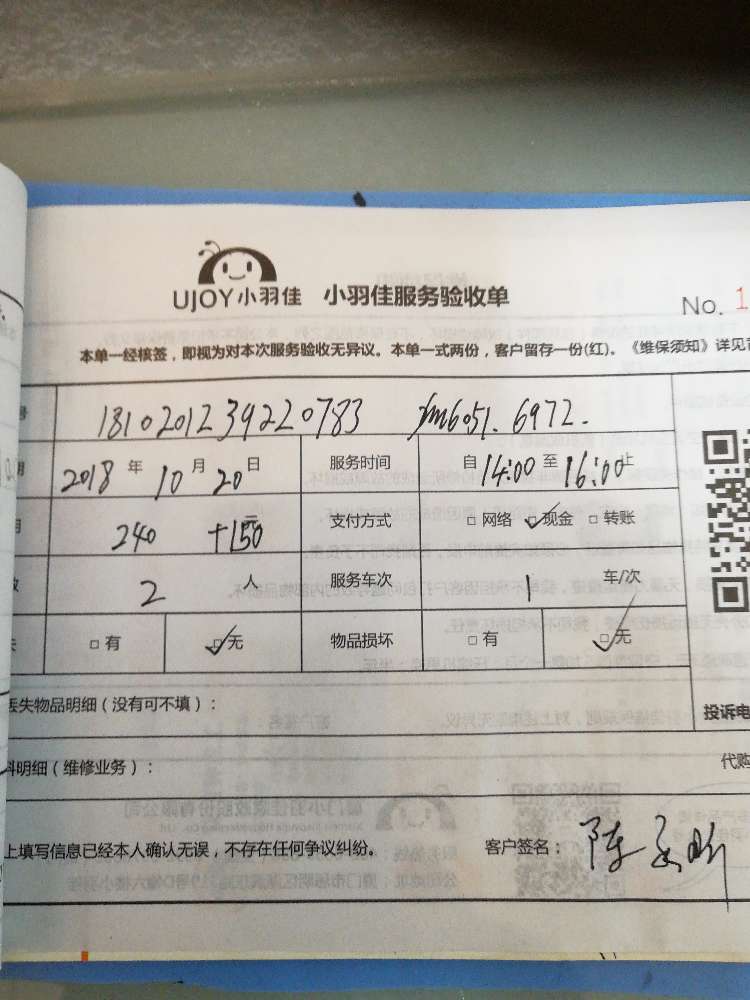 UJOY小羽佳 小羽佳服务验收单
No. 1
本单一经核签，即视为对本次服务验收无异议。本单一式两份，客户留存一份(红)。《维保须知》详见
号 1810201239220783 xm6051.6972.
2018 年 10 月 20 日 服务时间 自 14:00 至 16:00 止
240 +150 支付方式 □ 网络 ☑ 现金 □ 转账
2 人 服务车次 1 车/次
□ 有 ☑ 无 物品损坏 □ 有 ☑ 无
丢失物品明细（没有可不填）： 投诉电
料明细（维修业务）： 代购
上填写信息已经本人确认无误，不存在任何争议纠纷。 客户签名： 陈